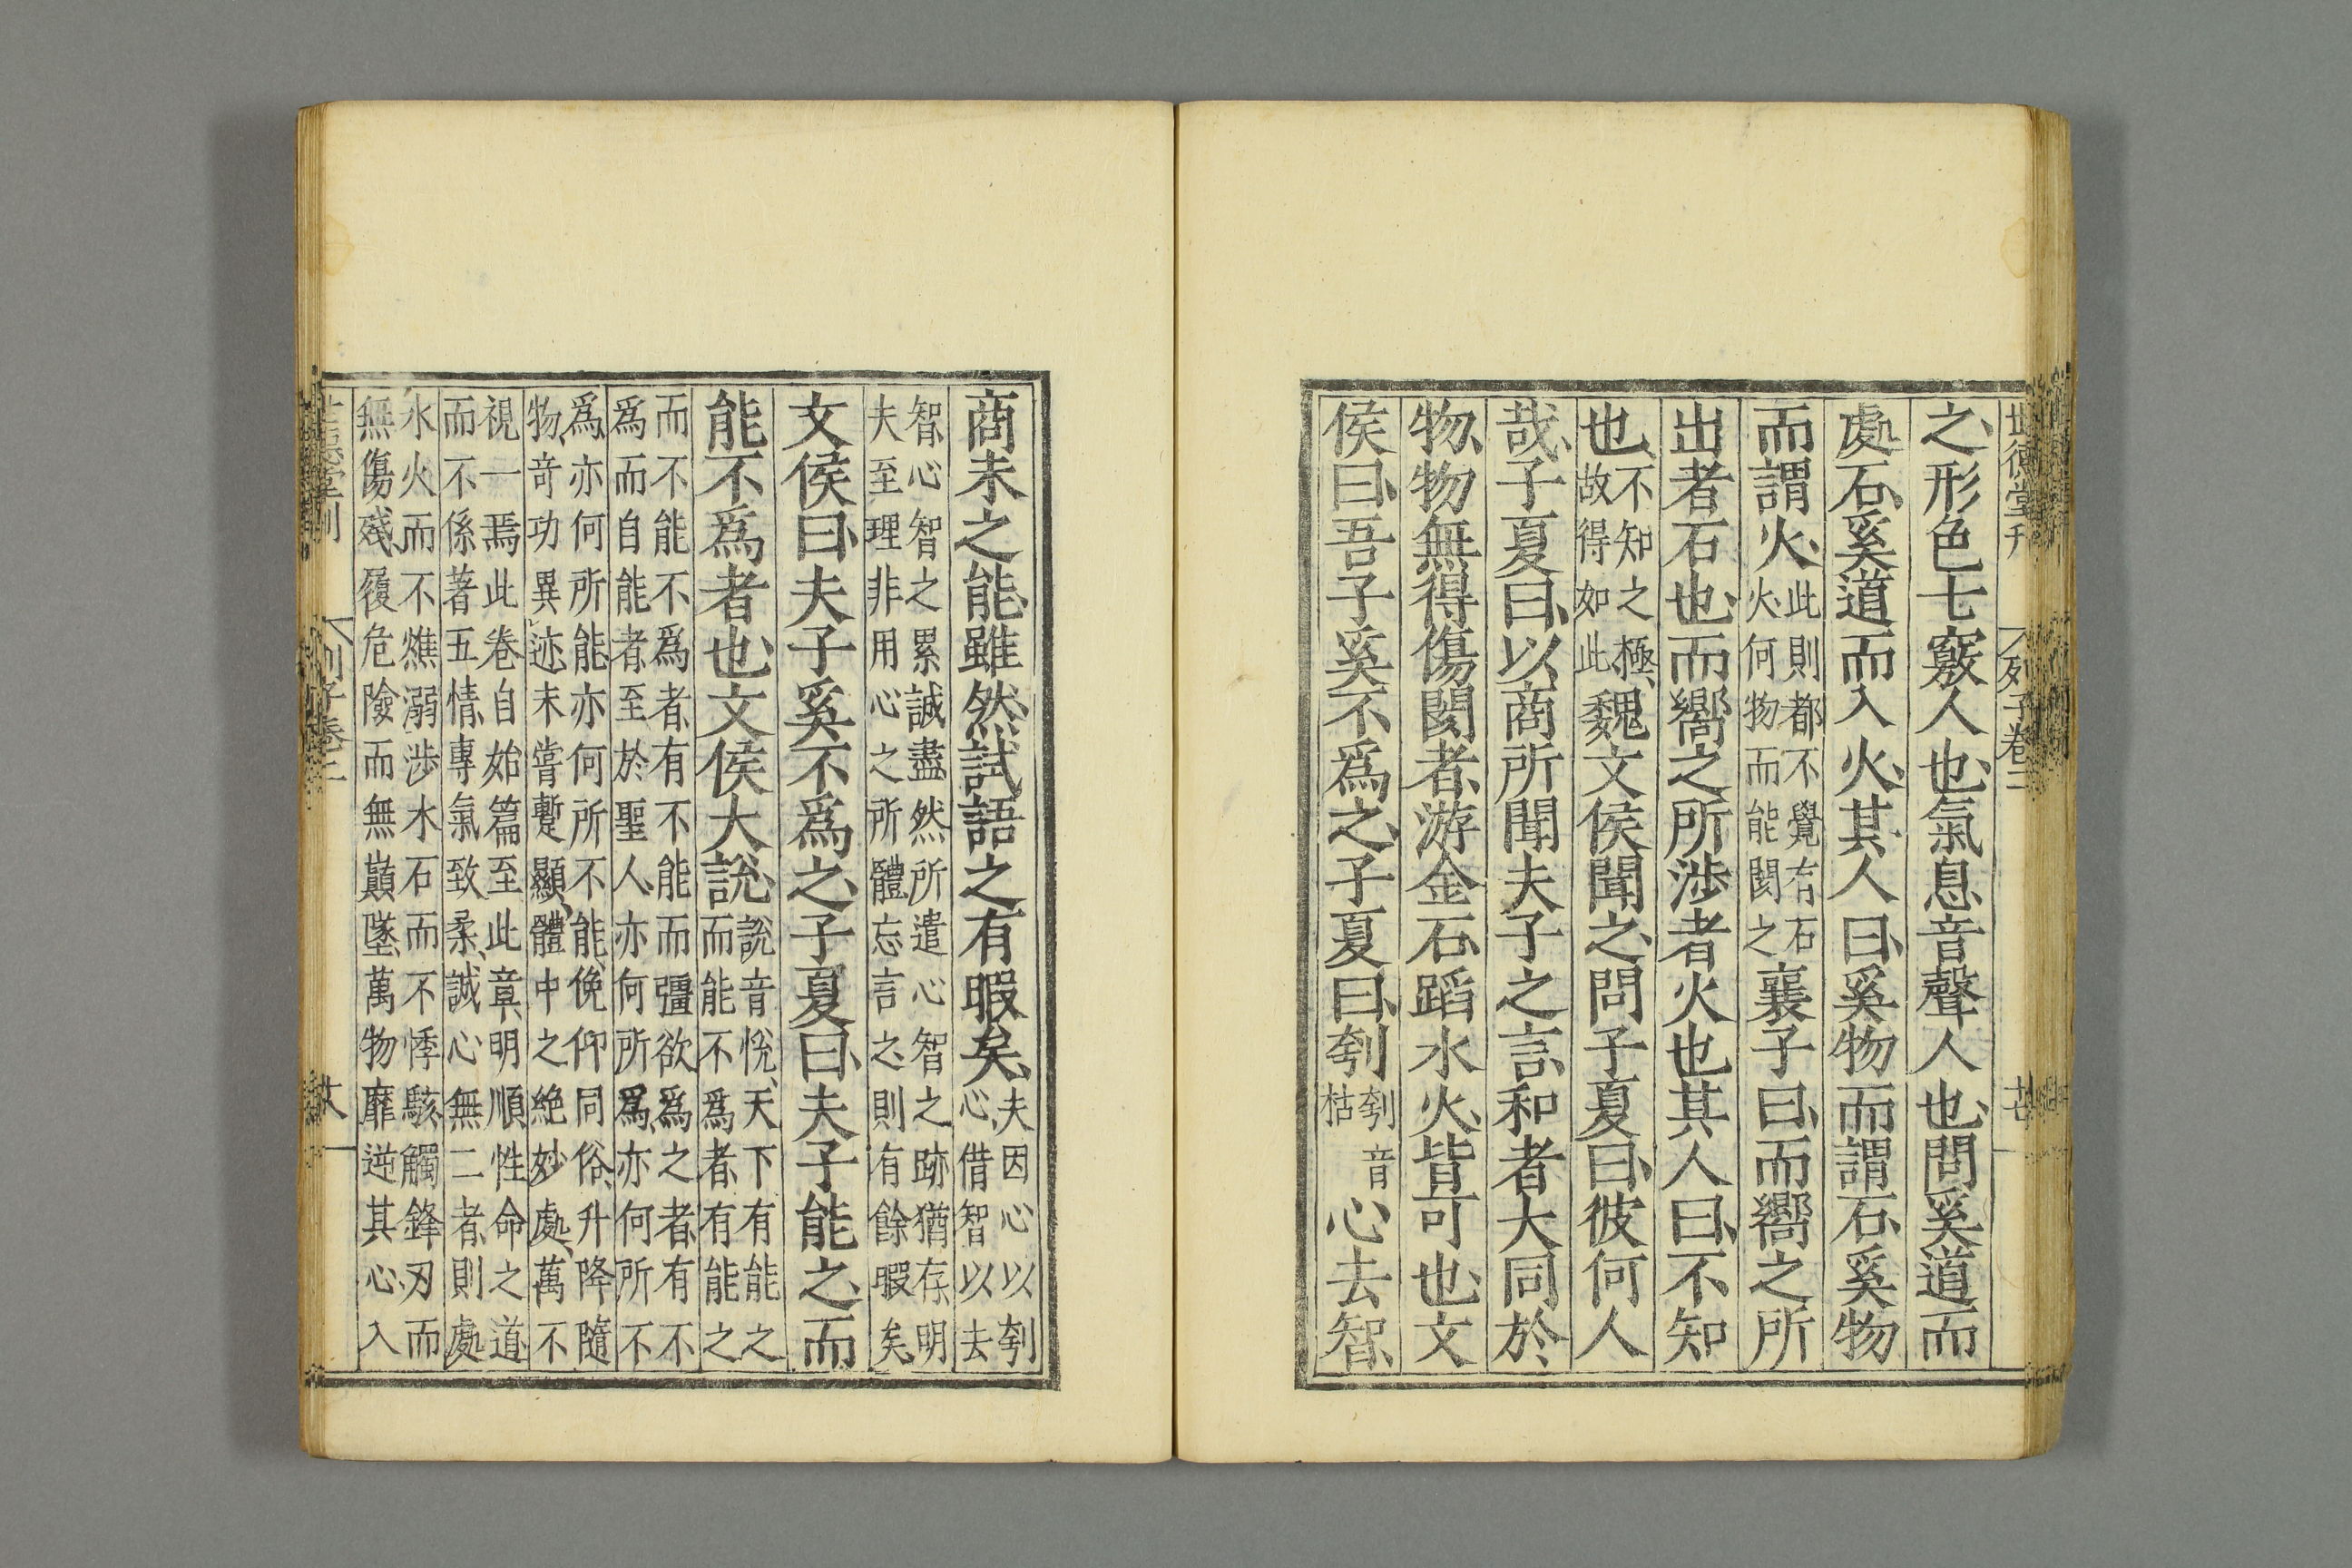 世德堂刊
列子卷二
之、形色七竅人也、氣息音聲人也、問奚道而
處石、奚道而入火、其人曰、奚物而謂石、奚物
而謂火、此則都不覺有石火、何物而能閡之、襄子曰、而嚮之所
出者石也、而嚮之所涉者火也其人曰、不知
也、不知之極、故得如此、魏文侯聞之、問子夏曰、彼何人
哉、子夏曰、以商所聞夫子之言、和者大同於
物、物無得傷閡者、游金石、蹈水火、皆可也、文
侯曰、吾子奚不爲之、子夏曰、刳刳音枯心去智、
商未之能、雖然、試語之有暇矣、夫因心以刳心、借智以去
智、心智之累誠盡、然所遣心智之跡猶存、明
夫至理非用心之所體忘言之、則有餘暇矣、
文侯曰、夫子奚不爲之、子夏曰、夫子能之、而
能不爲者也、文侯大説、説音悅、天下有能之而能不爲者、有能之
而不能不爲者、有不能而彊欲爲之者、有不
爲而自能者、至於聖人、亦何所爲、亦何所不
爲、亦何所能、亦何所不能、俛仰同俗、升降隨
物、奇功異迹、未嘗蹔顯、體中之絶妙處、萬不
視一焉此卷自始篇至此章、明順性命之道
而不係著五情、專氣致柔、誠心無二者、則處
水火而不燋溺、涉水石而不悸駭、觸鋒刃而
無傷殘、履危險而無巔墜、萬物靡逆其心、入
列子卷二